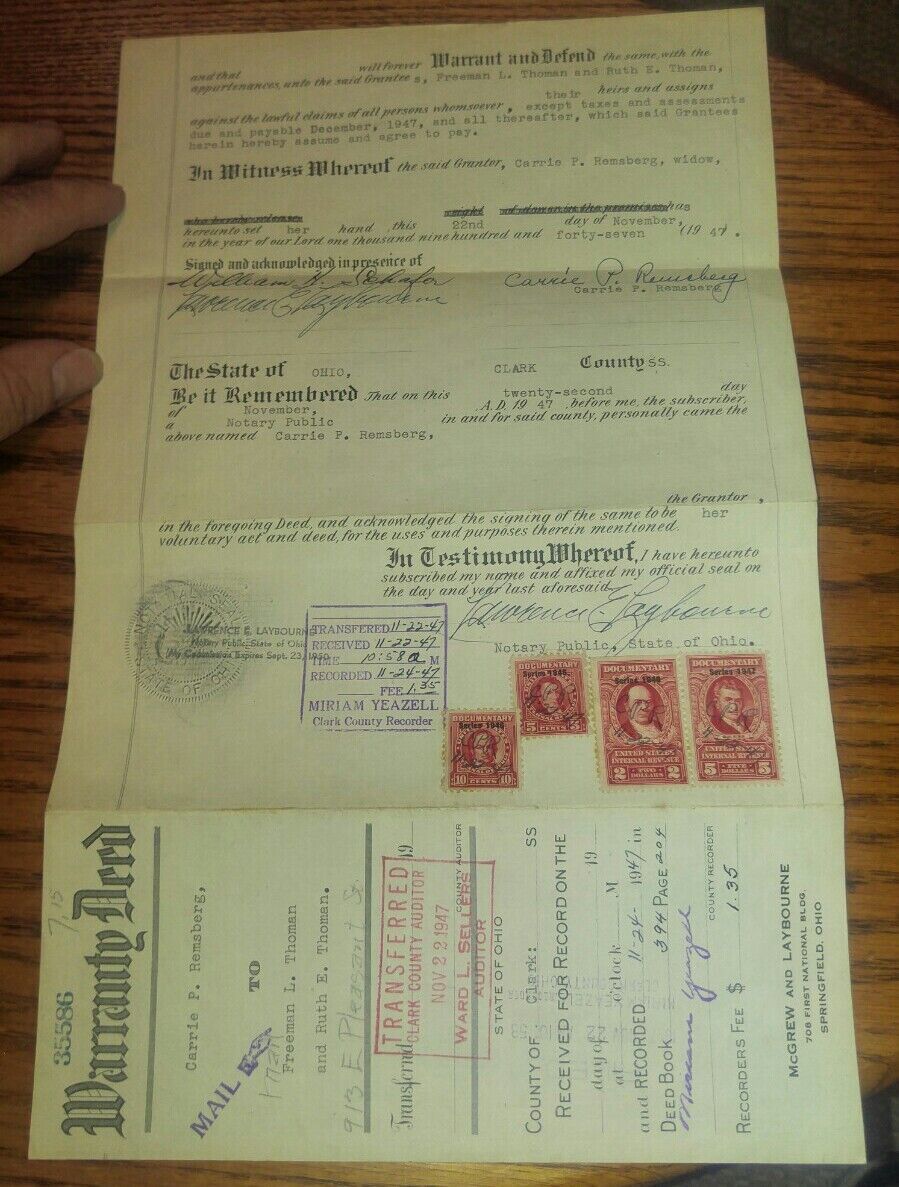 and that will forever Warrant and Defend the same, with the
appurtenances, unto the said Grantee s, Freeman L. Thoman and Ruth E. Thoman,
their heirs and assigns
against the lawful claims of all persons whomsoever , except taxes and assessments
due and payable December, 1947, and all thereafter, which said Grantees
herein hereby assume and agree to pay.
In Witness Whereof the said Grantor, Carrie P. Remsberg, widow,
who hereby release right of dower in the premises has
hereunto set her hand , this 22nd day of November,
in the year of our Lord one thousand nine hundred and forty-seven (19 47).
Signed and acknowledged in presence of
William H. Schafer Carrie P. Remsberg
Lawrence E. Laybourne Carrie P. Remsberg
The State of OHIO, CLARK County SS.
Be it Remembered That on this twenty-second day
of November, A.D. 19 47 , before me, the subscriber,
a Notary Public in and for said county, personally came the
above named Carrie P. Remsberg,
the Grantor ,
in the foregoing Deed, and acknowledged the signing of the same to be her
voluntary act and deed, for the uses and purposes therein mentioned.
In Testimony Whereof, I have hereunto
subscribed my name and affixed my official seal on
the day and year last aforesaid.
Lawrence E. Laybourne
Notary Public, State of Ohio.
LAWRENCE E. LAYBOURNE
Notary Public, State of Ohio
My Commission Expires Sept. 23, 1950
TRANSFERED 11-22-47
RECEIVED 11-22-47
TIME 10:58 a M
RECORDED 11-24-47
FEE 1.35
MIRIAM YEAZELL
Clark County Recorder
DOCUMENTARY
Series 1946
10 CENTS 10
DOCUMENTARY
Series 1946
5 CENTS 5
DOCUMENTARY
Series 1946
UNITED STATES
INTERNAL REVENUE
2 TWO DOLLARS 2
DOCUMENTARY
Series 1947
UNITED STATES
INTERNAL REVENUE
5 FIVE DOLLARS 5
35586
7.15
Warranty Deed
Carrie P. Remsberg,
TO
Freeman L. Thoman
and Ruth E. Thoman.
MAIL
913 E Pleasant St.
Transferred 19
COUNTY AUDITOR
TRANSFERRED
CLARK COUNTY AUDITOR
NOV 22 1947
WARD L. SELLERS
AUDITOR
STATE OF OHIO
COUNTY OF Clark: SS
RECEIVED FOR RECORD ON THE
day of 19
at o'clock M
and RECORDED 11-24- 1947 in
DEED BOOK 394 PAGE 204
Miriam Yeazell
COUNTY RECORDER
RECORDERS FEE $ 1.35
McGREW AND LAYBOURNE
708 FIRST NATIONAL BLDG.
SPRINGFIELD, OHIO